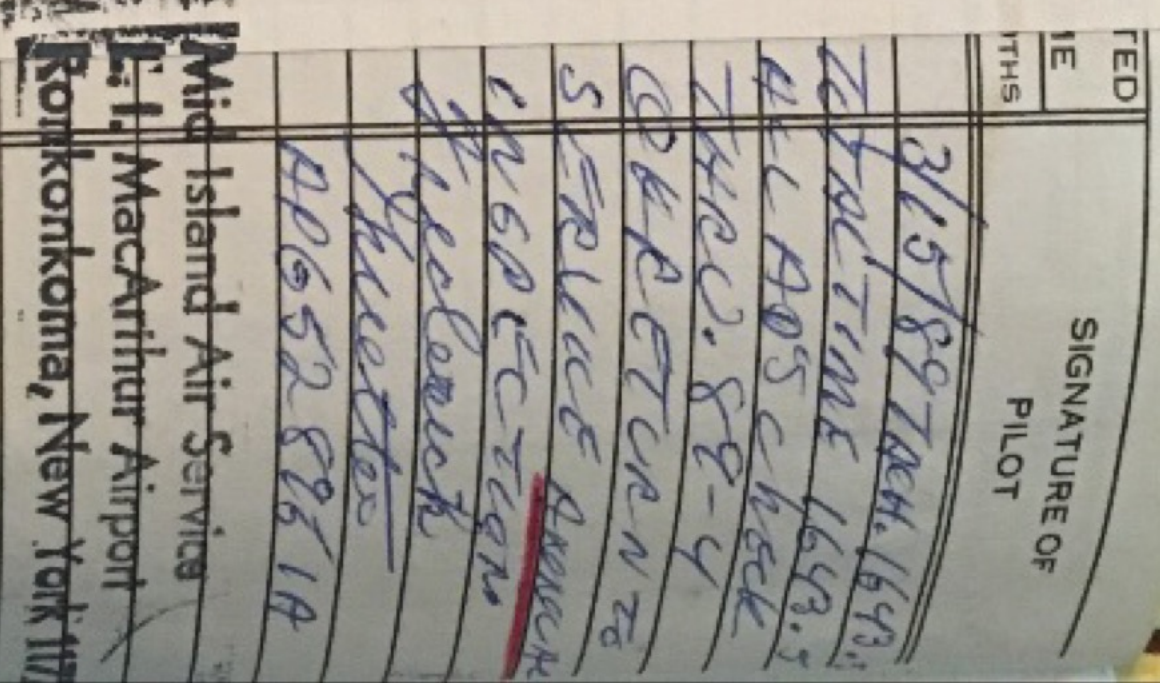 TED
ME
THS
SIGNATURE OF
PILOT
3/15/89 TACH. 1643.
TOTAL TIME 1643.5
ALL AD'S CHECK
THRU. 89-4
OK RETURN TO
SERVICE ANNUAL
INSPECTION
AP652896 IA
Mid Island Air Service
L. I. MacArthur Airport
Ronkonkoma, New York 117